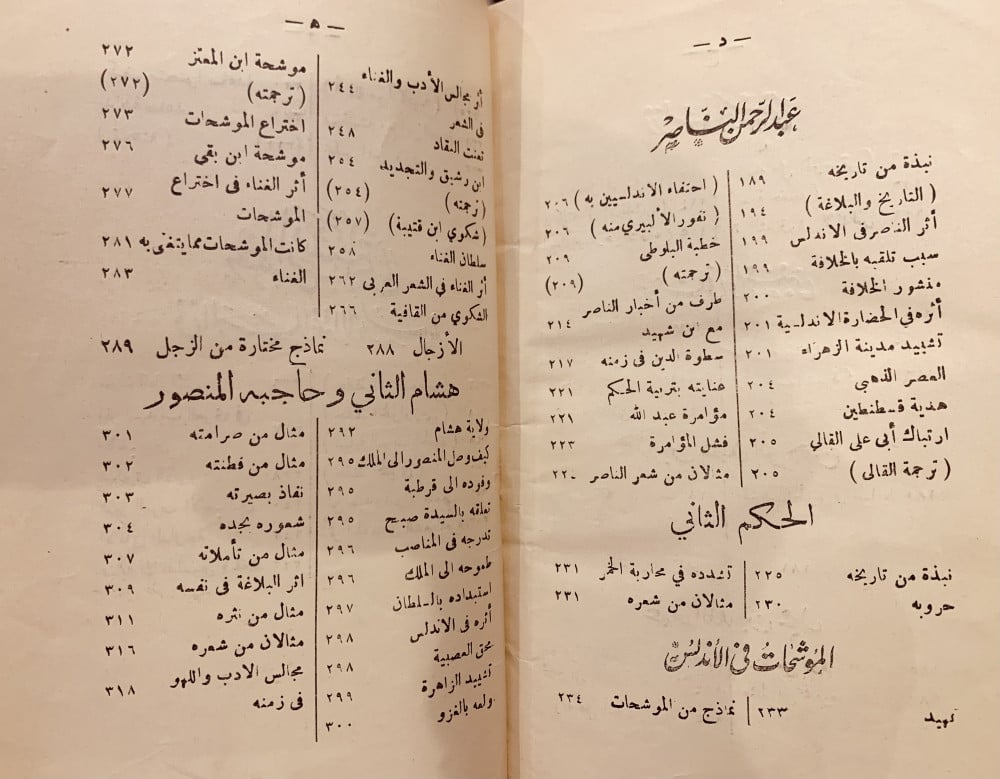 — د —
عبد الرحمن الناصر
نبذة من تاريخه ١٨٩
( التاريخ والبلاغة ) ١٩٤
أثر الناصر فى الاندلس ١٩٩
سبب تلقبه بالخلافة ١٩٩
منشور الخلافة ٢٠٠
أثره في الحضارة الاندلسية ٢٠١
تشييد مدينة الزهراء ٢٠١
العصر الذهبي ٢٠٤
هدية قسطنطين ٢٠٤
ارتباك أبى على القالي ٢٠٥
( ترجمة القالى ) ٢٠٥
( احتفاء الاندلسيين به ) ٢٠٦
( نفور الألبيري منه ) ٢٠٦
خطبة البلوطى ٢٠٩
( ترجمته ) (٢٠٩)
طرف من أخبار الناصر
مع ابن شهيد ٢١٤
سطوة الدين فى زمنه ٢١٧
عنايته بتربية الحكم ٢٢١
مؤامرة عبد الله ٢٢١
فشل المؤامرة ٢٢٣
مثالان من شعر الناصر
الحكم الثاني
نبذة من تاريخه ٢٢٥
حروبه ٢٣٠
تشدده في محاربة الخمر ٢٣١
مثالان من شعره ٢٣١
الموشحات في الأندلس
تمهيد ٢٣٣
نماذج من الموشحات ٢٣٤
— ه —
أثر مجالس الأدب والغناء
فى الشعر ٢٤٤
تعنت النقاد ٢٤٨
ابن رشيق والتجديد ٢٥٤
(ترجمته) (٢٥٤)
(شكوي ابن قتيبة) (٢٥٧)
سلطان الغناء ٢٥٨
أثر الغناء في الشعر العربى ٢٦٢
الشكوي من القافية ٢٦٦
موشحة ابن المعتز ٢٧٢
( ترجمته ) (٢٧٢)
اختراع الموشحات ٢٧٣
موشحة ابن بقى ٢٧٦
أثر الغناء فى اختراع
الموشحات ٢٧٧
كانت الموشحات مما يتغنى به ٢٨١
الغناء ٢٨٣
الأزجال ٢٨٨ نماذج مختارة من الزجل ٢٨٩
هشام الثاني وحاجبه المنصور
ولاية هشام ٢٩٢
كيف وصل المنصور الى الملك ٢٩٥
وفوده الى قرطبة ٢٩٥
تعلقه بالسيدة صبح ٢٩٥
تدرجه فى المناصب ٢٩٦
طموحه الى الملك ٢٩٦
استبداده بالسلطان ٢٩٧
أثره فى الاندلس ٢٩٨
محق العصبية ٢٩٨
تشييد الزاهرة ٢٩٩
ولعه بالغزو ٣٠٠
مثال من صرامته ٣٠١
مثال من فطنته ٣٠٢
نفاذ بصيرته ٣٠٣
شعوره بجده ٣٠٤
مثال من تأملاته ٣٠٧
اثر البلاغة فى نفسه ٣٠٩
مثال من نثره ٣١١
مثالان من شعره ٣١٦
مجالس الادب واللهو
فى زمنه ٣١٨